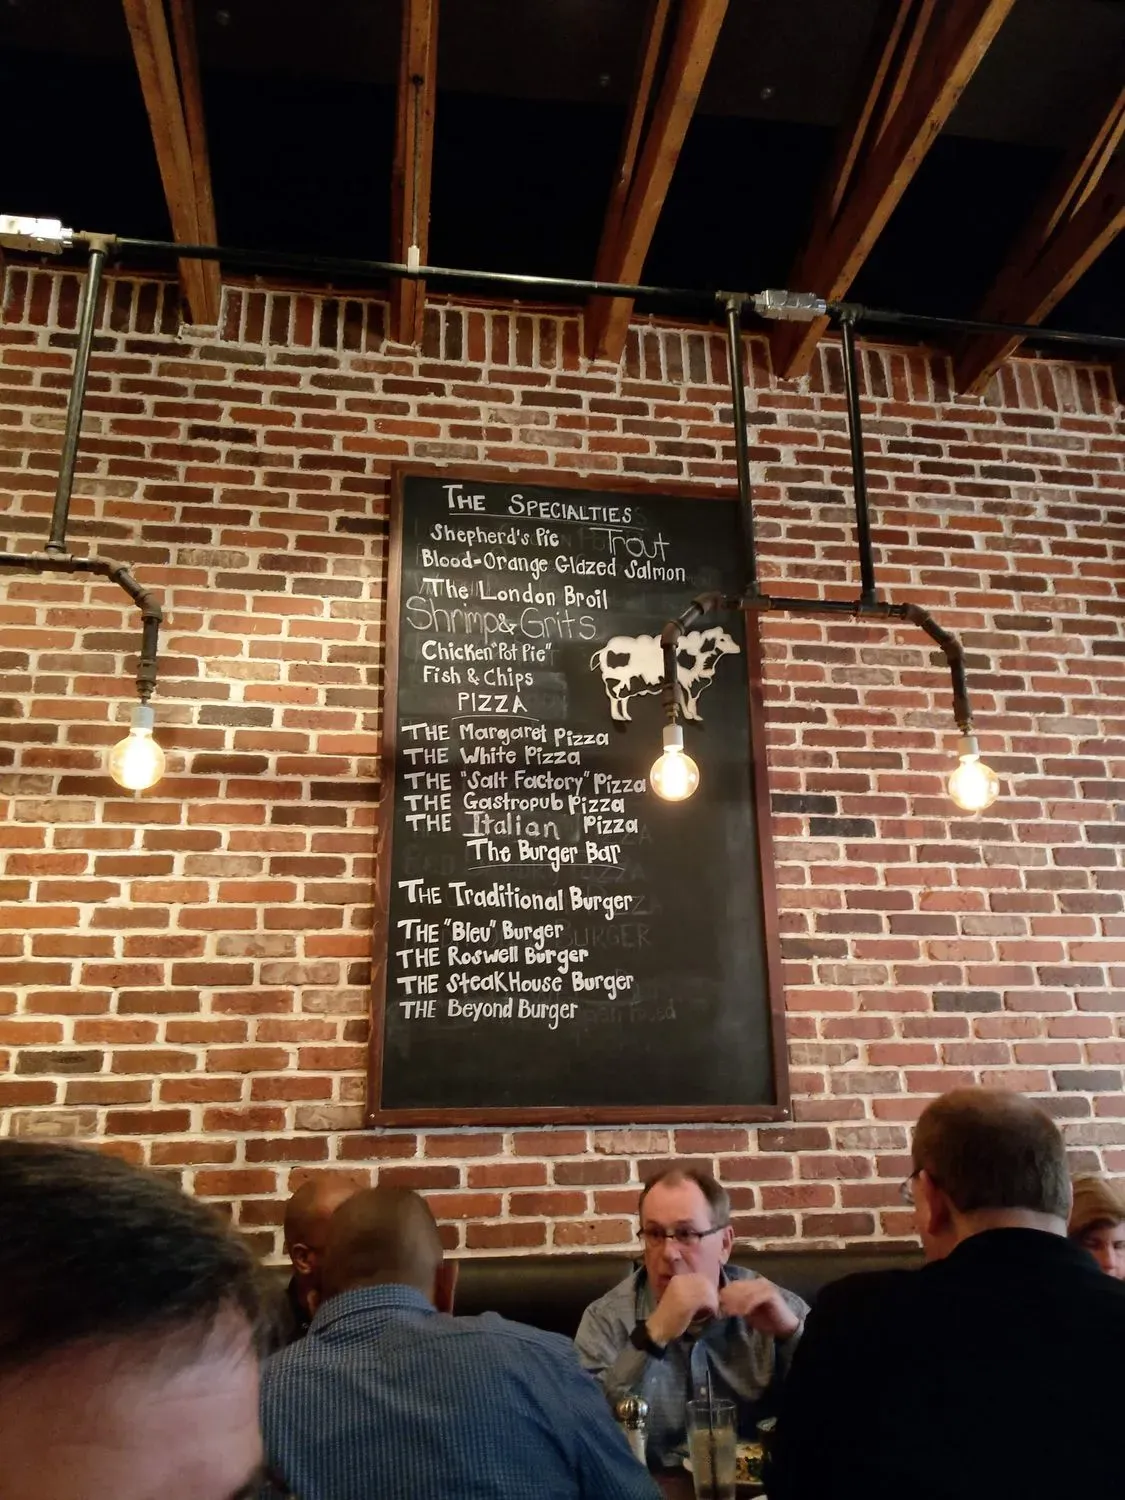 THE SPECIALTIES
Shepherd's Pie Trout
Blood-Orange Glazed Salmon
The London Broil
Shrimp & Grits
Chicken "Pot Pie"
Fish & Chips
PIZZA
THE Margaret Pizza
THE White Pizza
THE "Salt Factory" Pizza
THE Gastropub Pizza
THE Italian Pizza
The Burger Bar
THE Traditional Burger
THE "Bleu" Burger
THE Roswell Burger
THE SteakHouse Burger
THE Beyond Burger